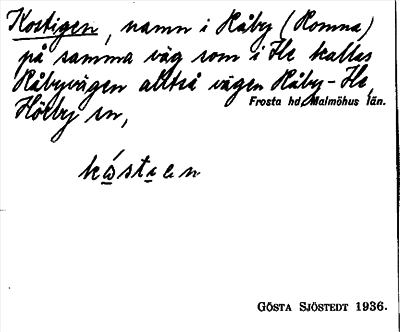 Kostigen, namn i Råby (Romna)
på samma väg som i He kallas
Råbyvägen alltså vägen Råby - He,
Frosta hd, Malmöhus län.
Hörby sn,
kåstian
GÖSTA SJÖSTEDT 1936.